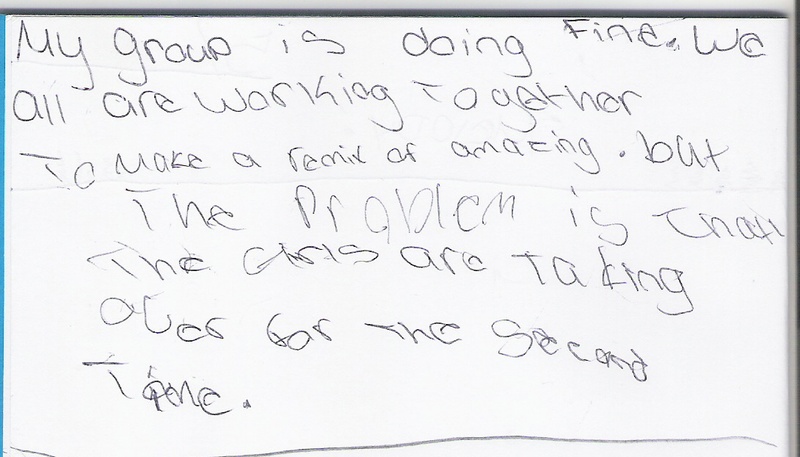 My group is doing Fine. We
all are working Together
To Make a remix of amazing. but
The Problem is that
The Girls are Taking
over for the Second
Time.